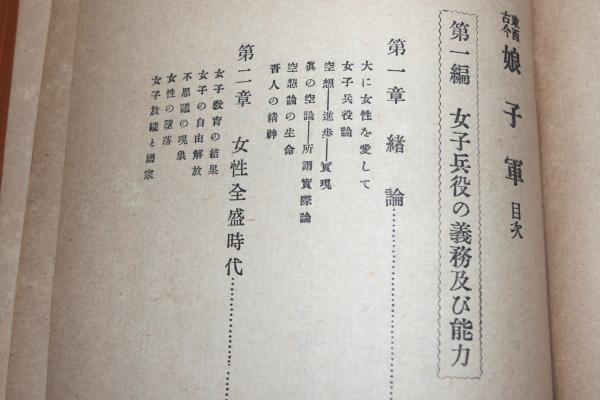 東西古今 娘子軍 目次
第一編 女子兵役の義務及び能力
第一章 緒論
大に女性を愛して
女子兵役論
空想――進歩――實現
眞の空論――所謂實際論
空想論の生命
吾人の精神
第二章 女性全盛時代
女子教育の結果
女子の自由解放
不思議の現象
女性の墮落
女子放縱と國家